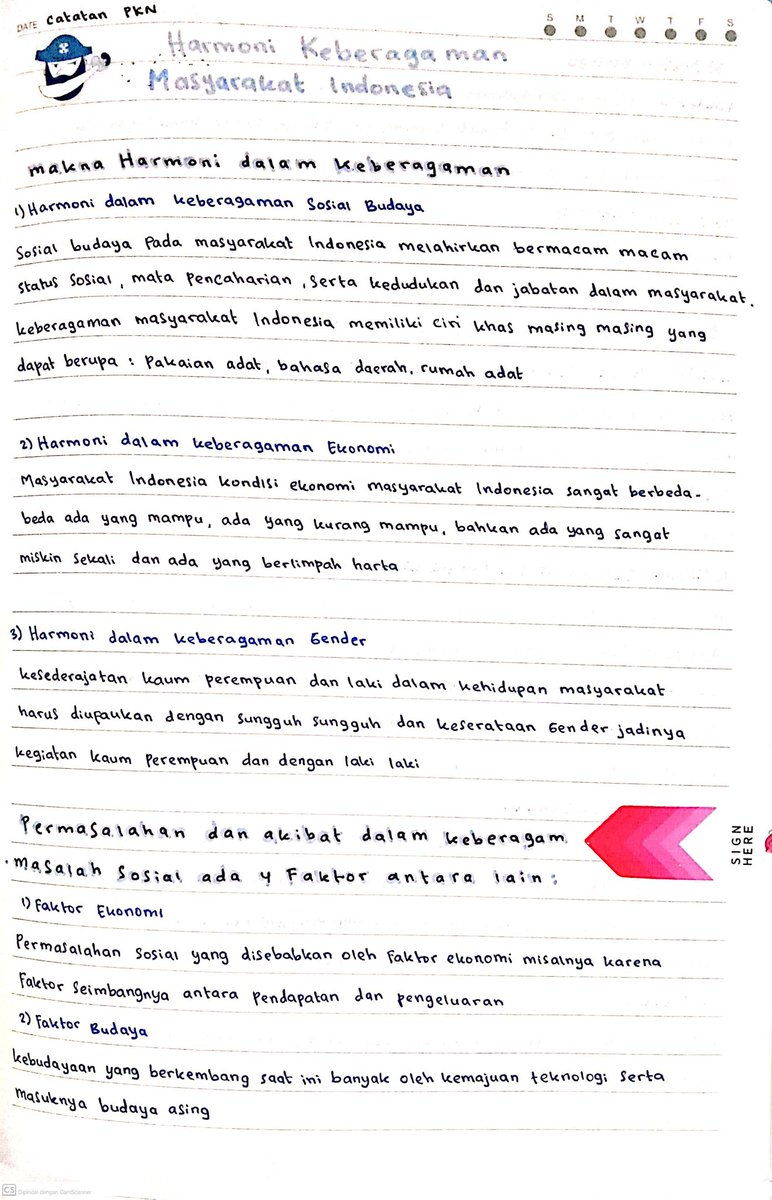 DATE Catatan PKN
S M T W T F S
Harmoni Keberagaman
Masyarakat Indonesia
makna Harmoni dalam keberagaman
1) Harmoni dalam keberagaman Sosial Budaya
Sosial budaya Pada masyarakat Indonesia melahirkan bermacam macam
status sosial, mata pencaharian, serta kedudukan dan jabatan dalam masyarakat.
keberagaman masyarakat Indonesia memiliki ciri khas masing masing yang
dapat berupa : Pakaian adat, bahasa daerah, rumah adat
2) Harmoni dalam keberagaman Ekonomi
Masyarakat Indonesia kondisi ekonomi masyarakat Indonesia sangat berbeda-
beda ada yang mampu, ada yang kurang mampu, bahkan ada yang sangat
miskin sekali dan ada yang berlimpah harta
3) Harmoni dalam keberagaman Gender
kesederajatan kaum perempuan dan laki dalam kehidupan masyarakat
harus diupaukan dengan sungguh sungguh dan keserataan Gender jadinya
kegiatan kaum perempuan dan dengan laki laki
Permasalahan dan akibat dalam keberagam
SIGN HERE
• masalah Sosial ada 4 Faktor antara lain :
1) Faktor Ekonomi
Permasalahan Sosial yang disebabkan oleh Faktor ekonomi misalnya karena
Faktor Seimbangnya antara pendapatan dan pengeluaran
2) Faktor Budaya
kebudayaan yang berkembang saat ini banyak oleh kemajuan teknologi serta
masuknya budaya asing
CS Dipindai dengan CamScanner